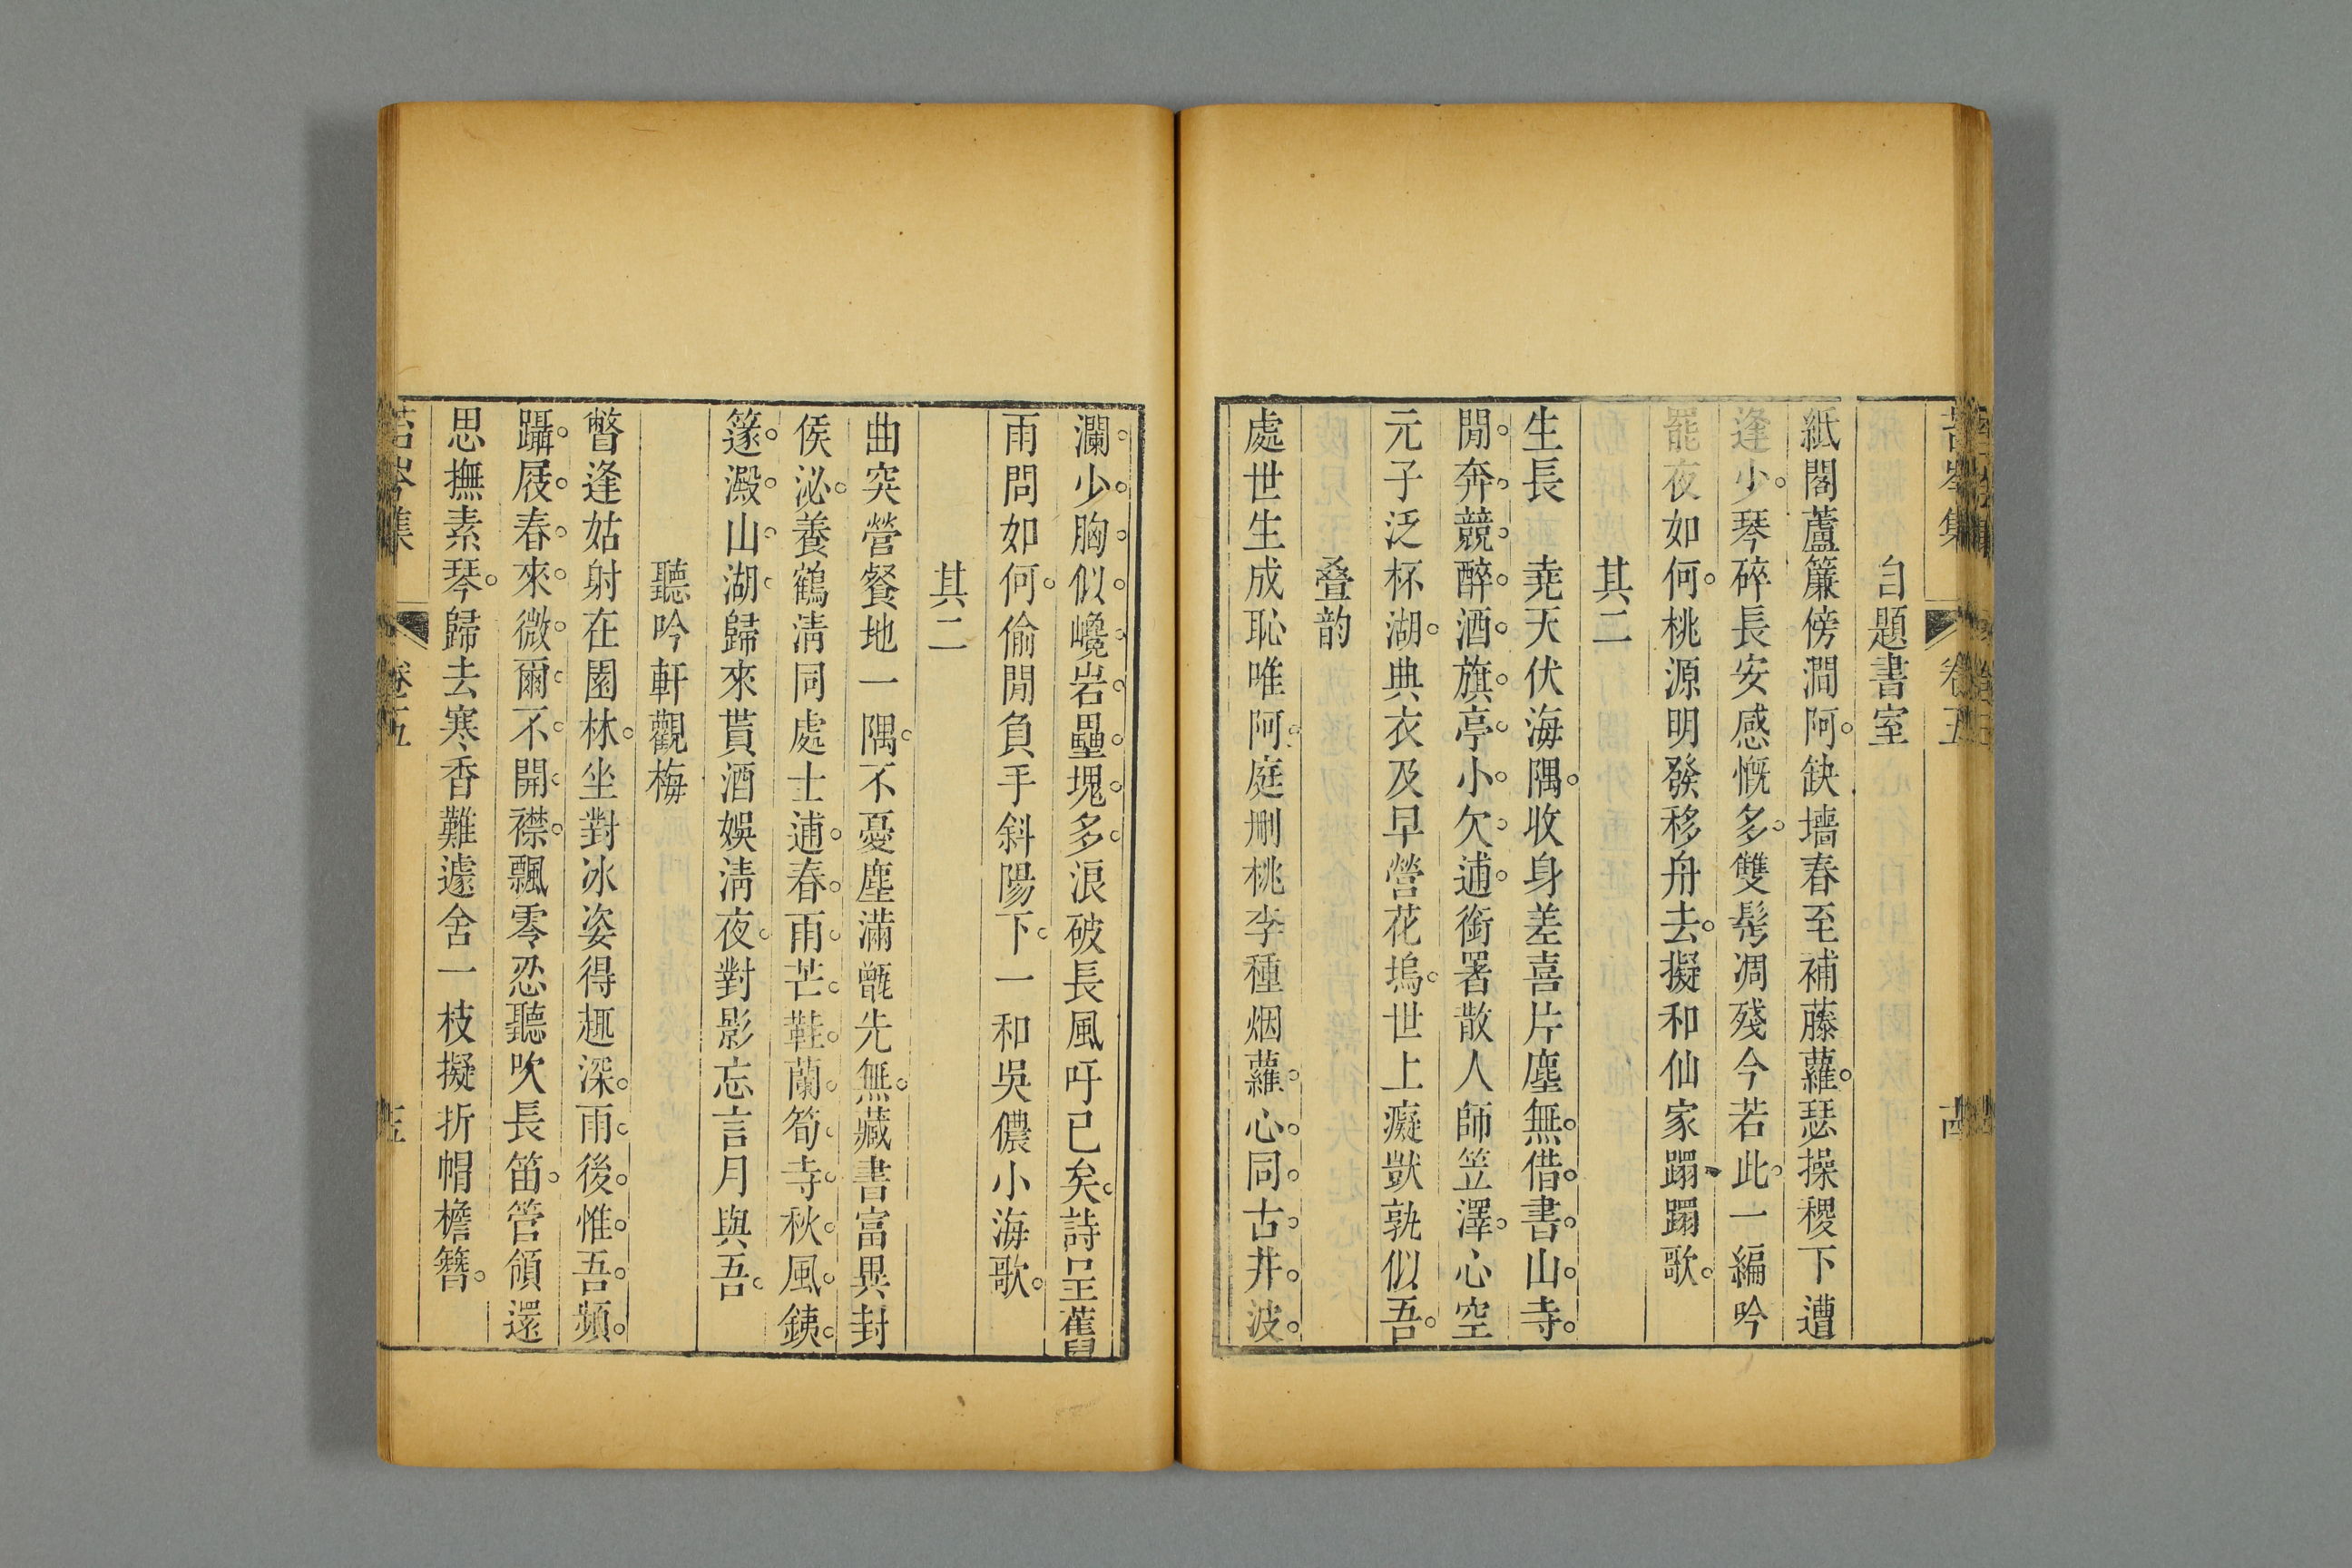 苔岑集 卷五
自題書室
紙閣蘆簾傍澗阿缺墻春至補藤蘿瑟操稷下遭
逢少琴碎長安感慨多雙髩凋殘今若此一編吟
罷夜如何桃源明發移舟去擬和仙家蹋蹋歌
其二
生長 堯天伏海隅收身差喜片塵無借書山寺
閒奔競醉酒旗亭小欠逋銜署散人師笠澤心空
元子泛杯湖典衣及早營花塢世上癡獃孰似吾
叠韵
處世生成恥唯阿庭刪桃李種烟蘿心同古井波
瀾少胸似巉岩壘塊多浪破長風吁已矣詩呈舊
雨問如何偷閒負手斜陽下一和吳儂小海歌
其二
曲突營餐地一隅不憂塵滿甑先無藏書富異封
侯泌養鶴淸同處士逋春雨芒鞋蘭筍寺秋風銕
篴澱山湖歸來貰酒娛淸夜對影忘言月與吾
聽吟軒觀梅
瞥逢姑射在園林坐對冰姿得趣深雨後惟吾頻
躡屐春來微爾不開襟飄零忍聽吹長笛管領還
思撫素琴歸去寒香難遽舍一枝擬折帽檐簪
苔岑集 卷五